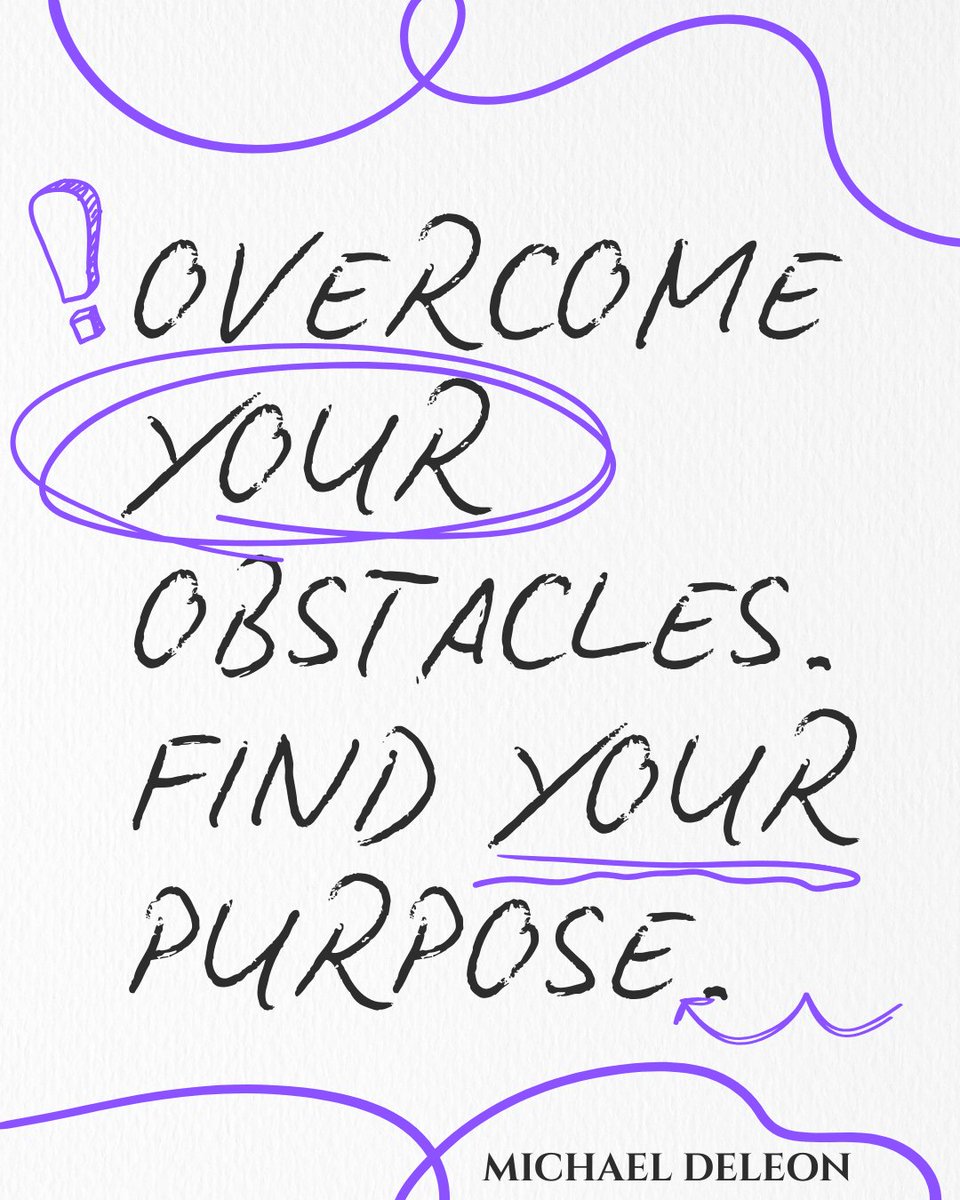 OVERCOME
YOUR
OBSTACLES.
FIND YOUR
PURPOSE.
MICHAEL DELEON